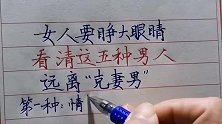 女人要睁大眼睛
看清这五种男人
远离“克妻男”
第一种:情